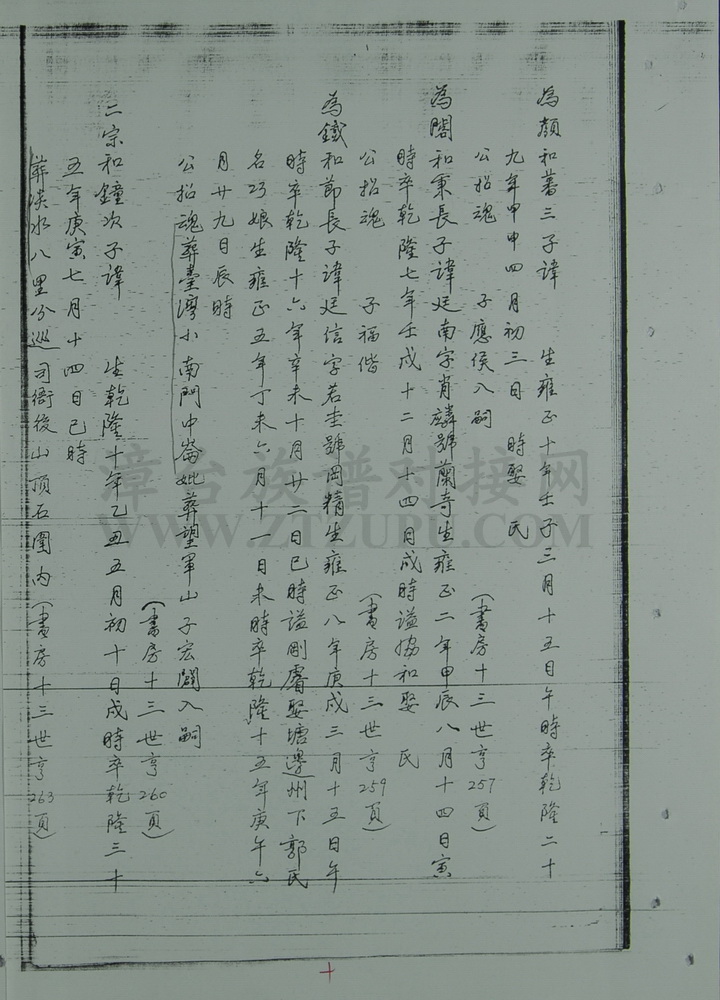 為顏和蕃三子諱　生雍正十年壬子三月十五日午時卒乾隆二十
九年甲申四月初三日　時娶　氏
公招魂　子應侯入嗣　（書房十三世亨257頁）
為閣和秉長子諱廷南字肖麟號蘭奇生雍正二年甲辰八月十四日寅
時卒乾隆七年壬戌十二月十四月戌時謚協和娶　氏
公招魂　子福偕　（書房十三世亨259頁）
為鐵和節長子諱廷信字若圭號岡精生雍正八年庚戌三月十五日午
時卒乾隆十六年辛未十月廿二日巳時謚剛睿娶塘邊州下郭氏
名巧娘生雍正五年丁未六月十一日未時卒乾隆十五年庚午六
月廿九日辰時
公招魂葬臺灣小南門中崙妣葬望軍山子宏闢入嗣
（書房十三世亨260頁）
二宗和鐘次子諱　生乾隆十年乙丑五月初十日戌時卒乾隆三十
五年庚寅七月十四日巳時
葬淡水八里分巡司衙後山頂石圍內（書房十三世亨263頁）
十
漳台族谱对接网
WWW.ZTZUPU.COM